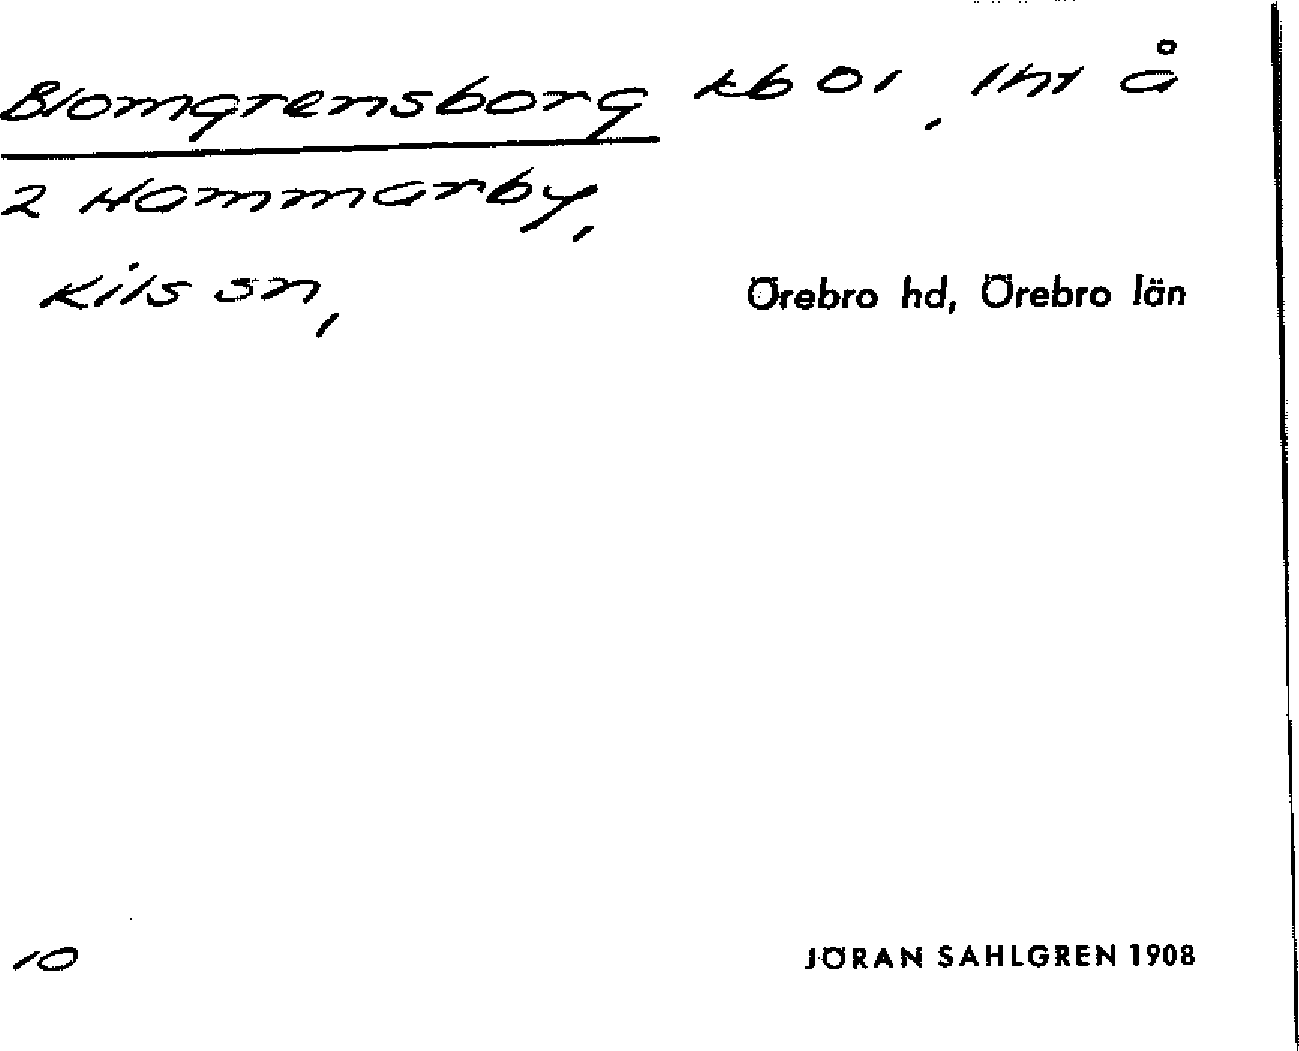 Blomgrensborg kb 01, lht å
2 Hammarby,
Kils sn, Örebro hd, Örebro län
10 JÖRAN SAHLGREN 1908